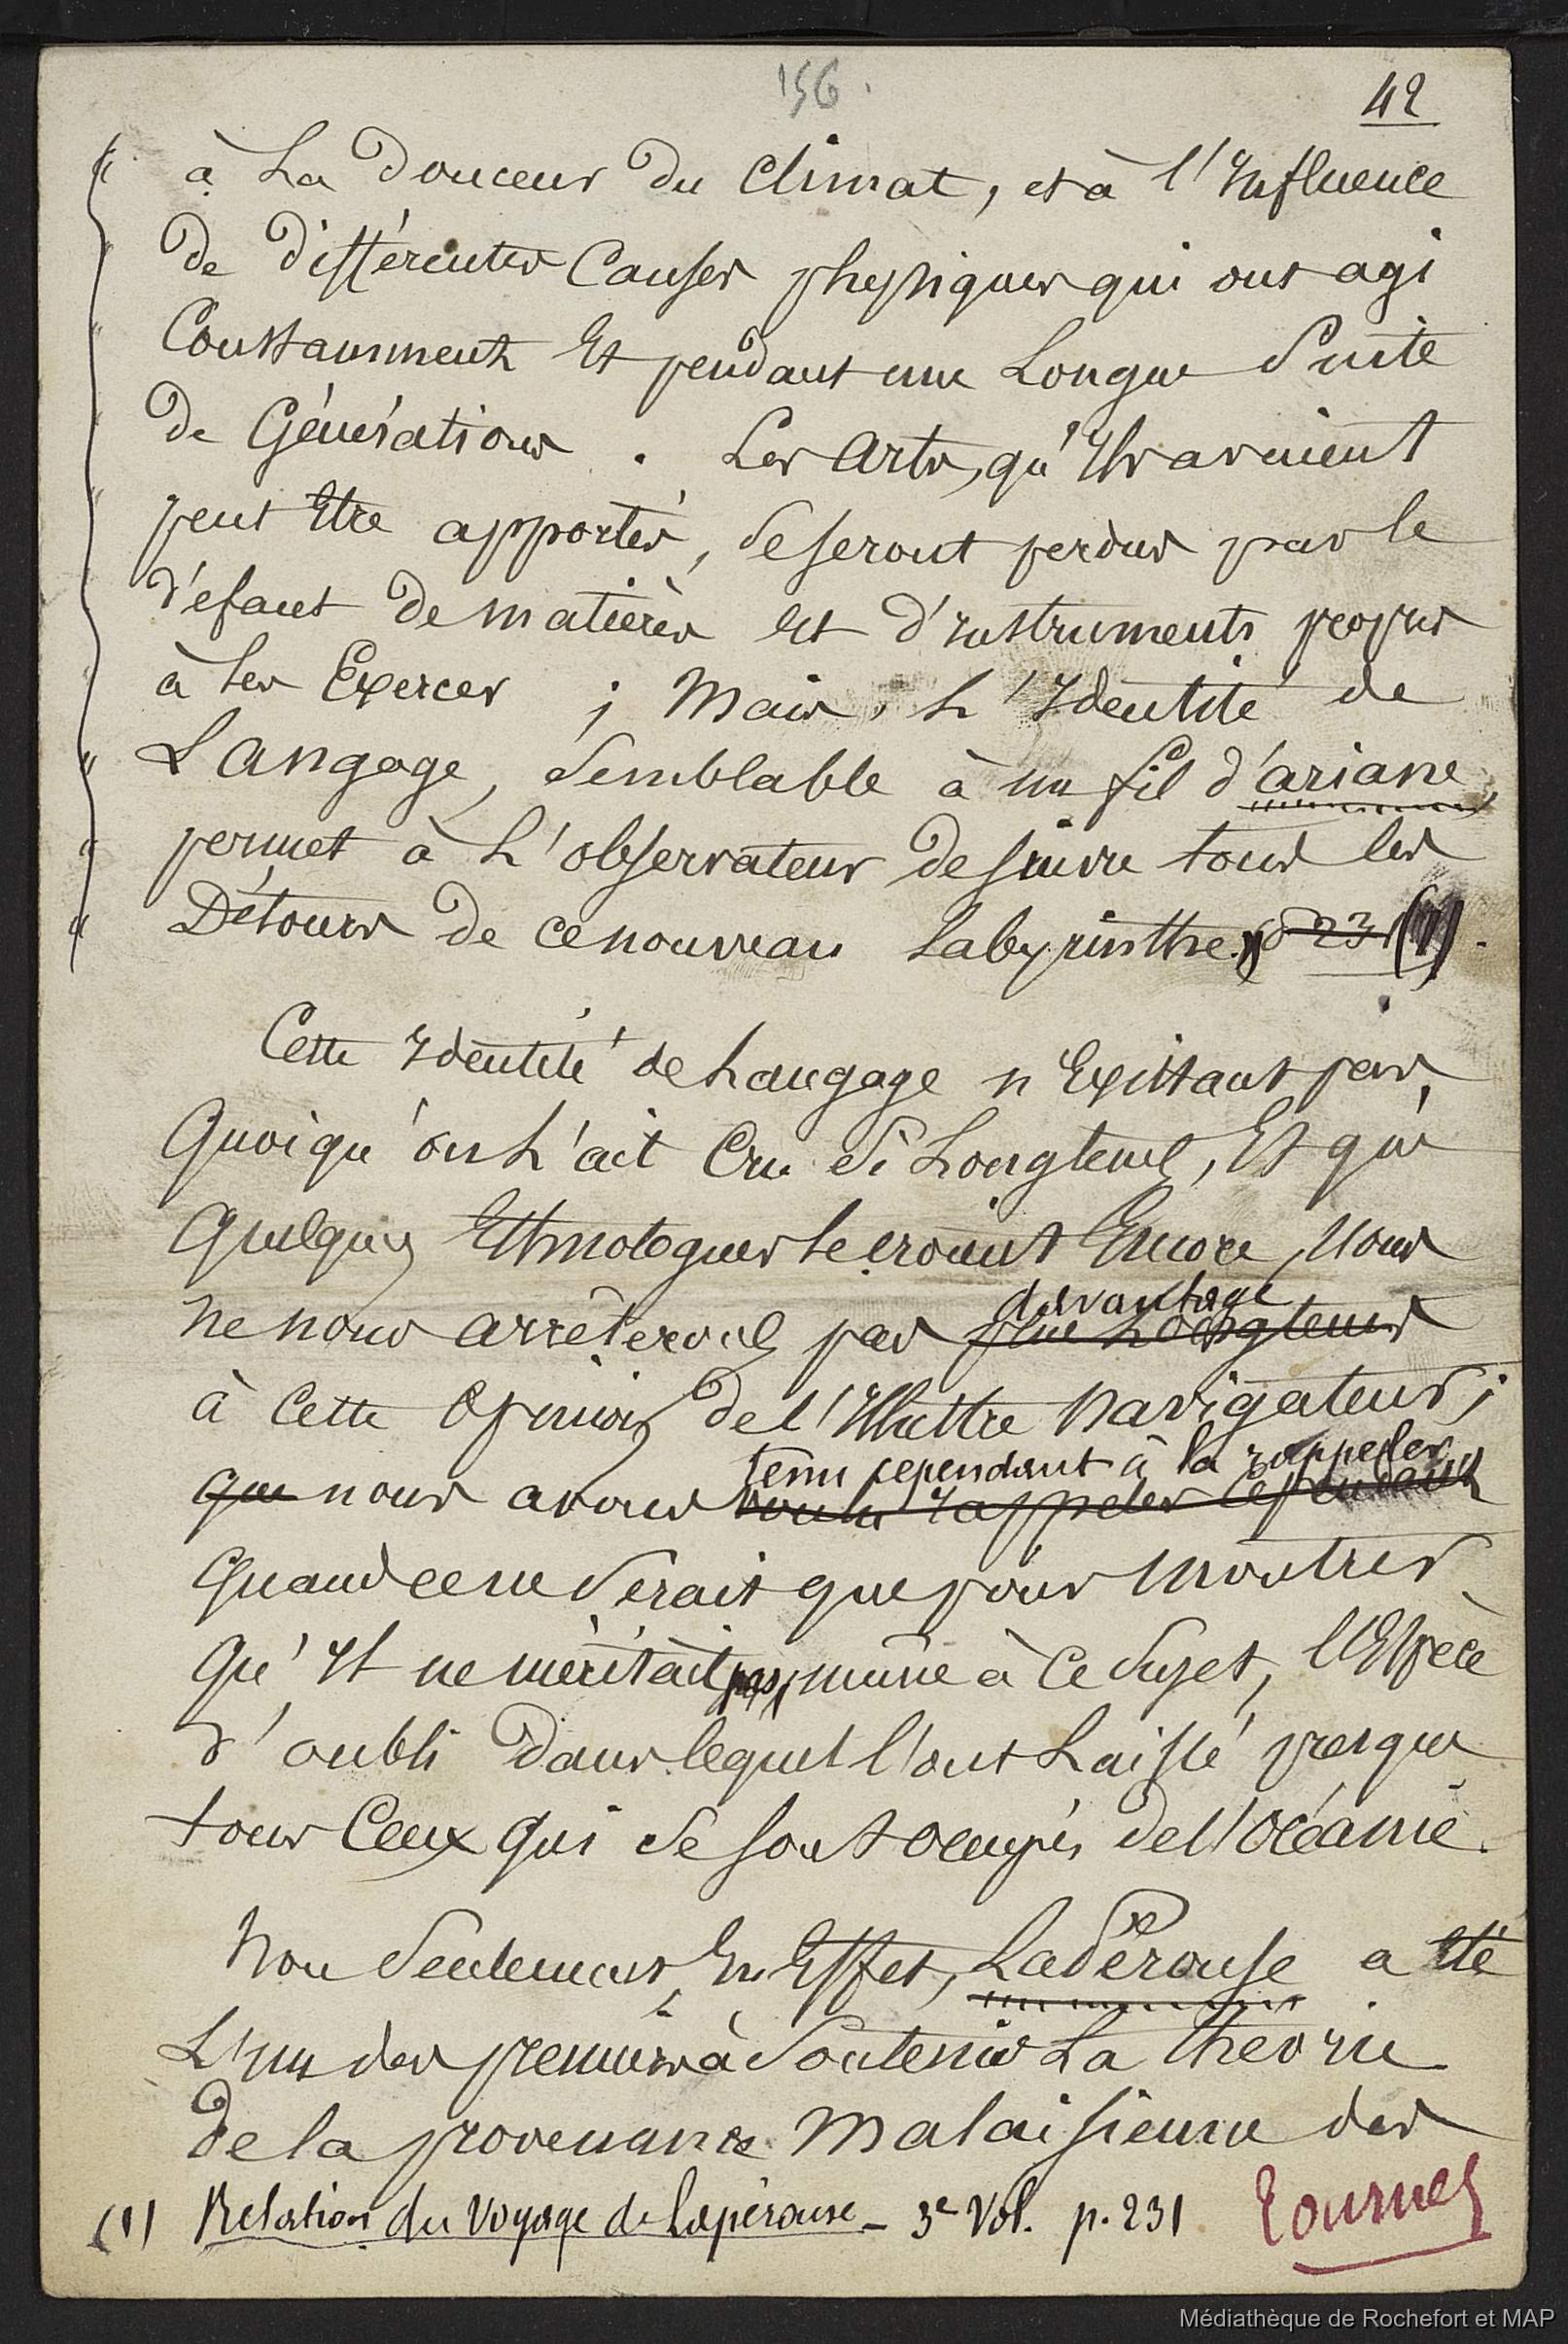 156.
42
" à La Douceur du Climat, et à l'Influence
de différentes Causes physiques qui ont agi
Constamment Et pendant une Longue Suite
de Générations. Les Arts, qu'Ils avaient
peut Etre apportés, se seront perdus par le
défaut de matières Et d'Instruments propres
à les Exercer ; Mais, L'Identité de
Langage, semblable à un fil d'ariane,
permet à L'observateur de suivre tous les
Détours de ce nouveau labyrinthe. » p 231 (1).
Cette Identité de Langage n'Existant pas,
Quoiqu'on L'ait Cru si Longtems, Et que
Quelques Ethnologues le croient Encore, Nous
davantage
ne nous arrêterons pas plus Longtems
à Cette Opinion de l'Illustre Navigateur ;
tenu cependant à la rappeler
que nous avons voulu rappeler cependant
Quand ce ne serait que pour montrer
Qu'Il ne méritait pas, même à ce sujet, l'Espèce
d'oubli dans lequel l'ont Laissé presque
tous Ceux qui se sont occupés de l'Océanie.
Non seulement, En Effet, LaPérouse a été
L'un des premiers à soutenir La théorie
de la provenance Malaisienne des
(1) Relation du Voyage de Lapérouse – 3e Vol. p. 231
Tournez
Médiathèque de Rochefort et MAP